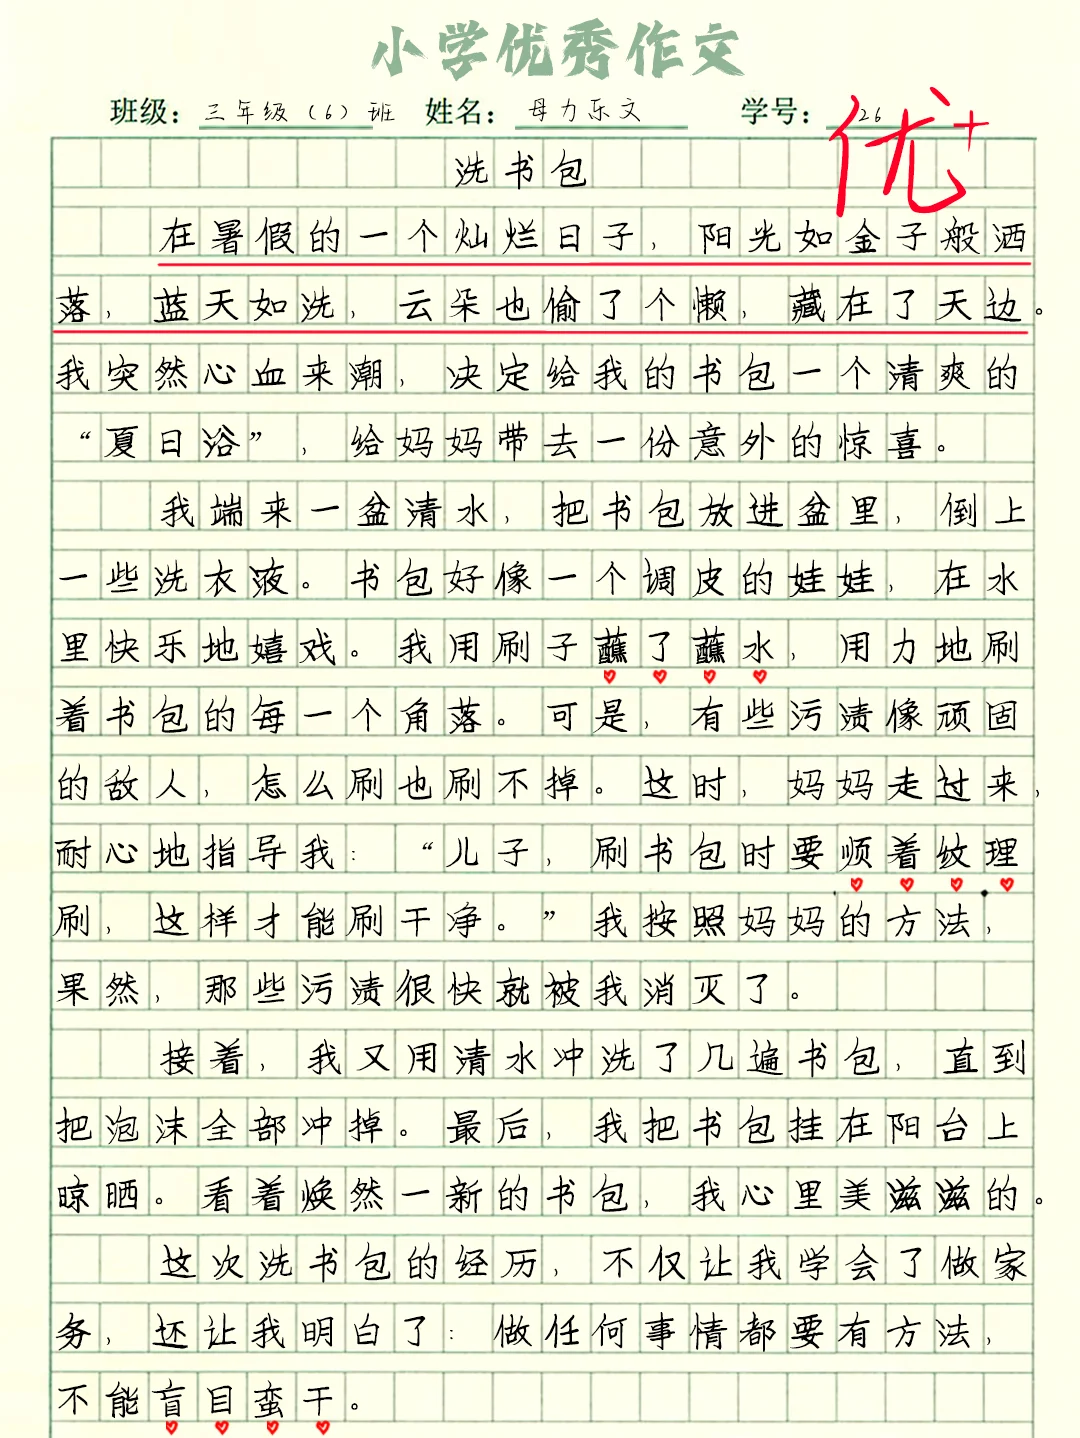 小学优秀作文
班级：三年级（6）班 姓名：母力乐文 学号：26
优+
洗书包
在暑假的一个灿烂日子，阳光如金子般洒
落，蓝天如洗，云朵也偷了个懒，藏在了天边。
我突然心血来潮，决定给我的书包一个清爽的
“夏日浴”，给妈妈带去一份意外的惊喜。
我端来一盆清水，把书包放进盆里，倒上
一些洗衣液。书包好像一个调皮的娃娃，在水
里快乐地嬉戏。我用刷子蘸了蘸水，用力地刷
着书包的每一个角落。可是，有些污渍像顽固
的敌人，怎么刷也刷不掉。这时，妈妈走过来，
耐心地指导我：“儿子，刷书包时要顺着纹理
刷，这样才能刷干净。”我按照妈妈的方法，
果然，那些污渍很快就被我消灭了。
接着，我又用清水冲洗了几遍书包，直到
把泡沫全部冲掉。最后，我把书包挂在阳台上
晾晒。看着焕然一新的书包，我心里美滋滋的。
这次洗书包的经历，不仅让我学会了做家
务，还让我明白了：做任何事情都要有方法，
不能盲目蛮干。